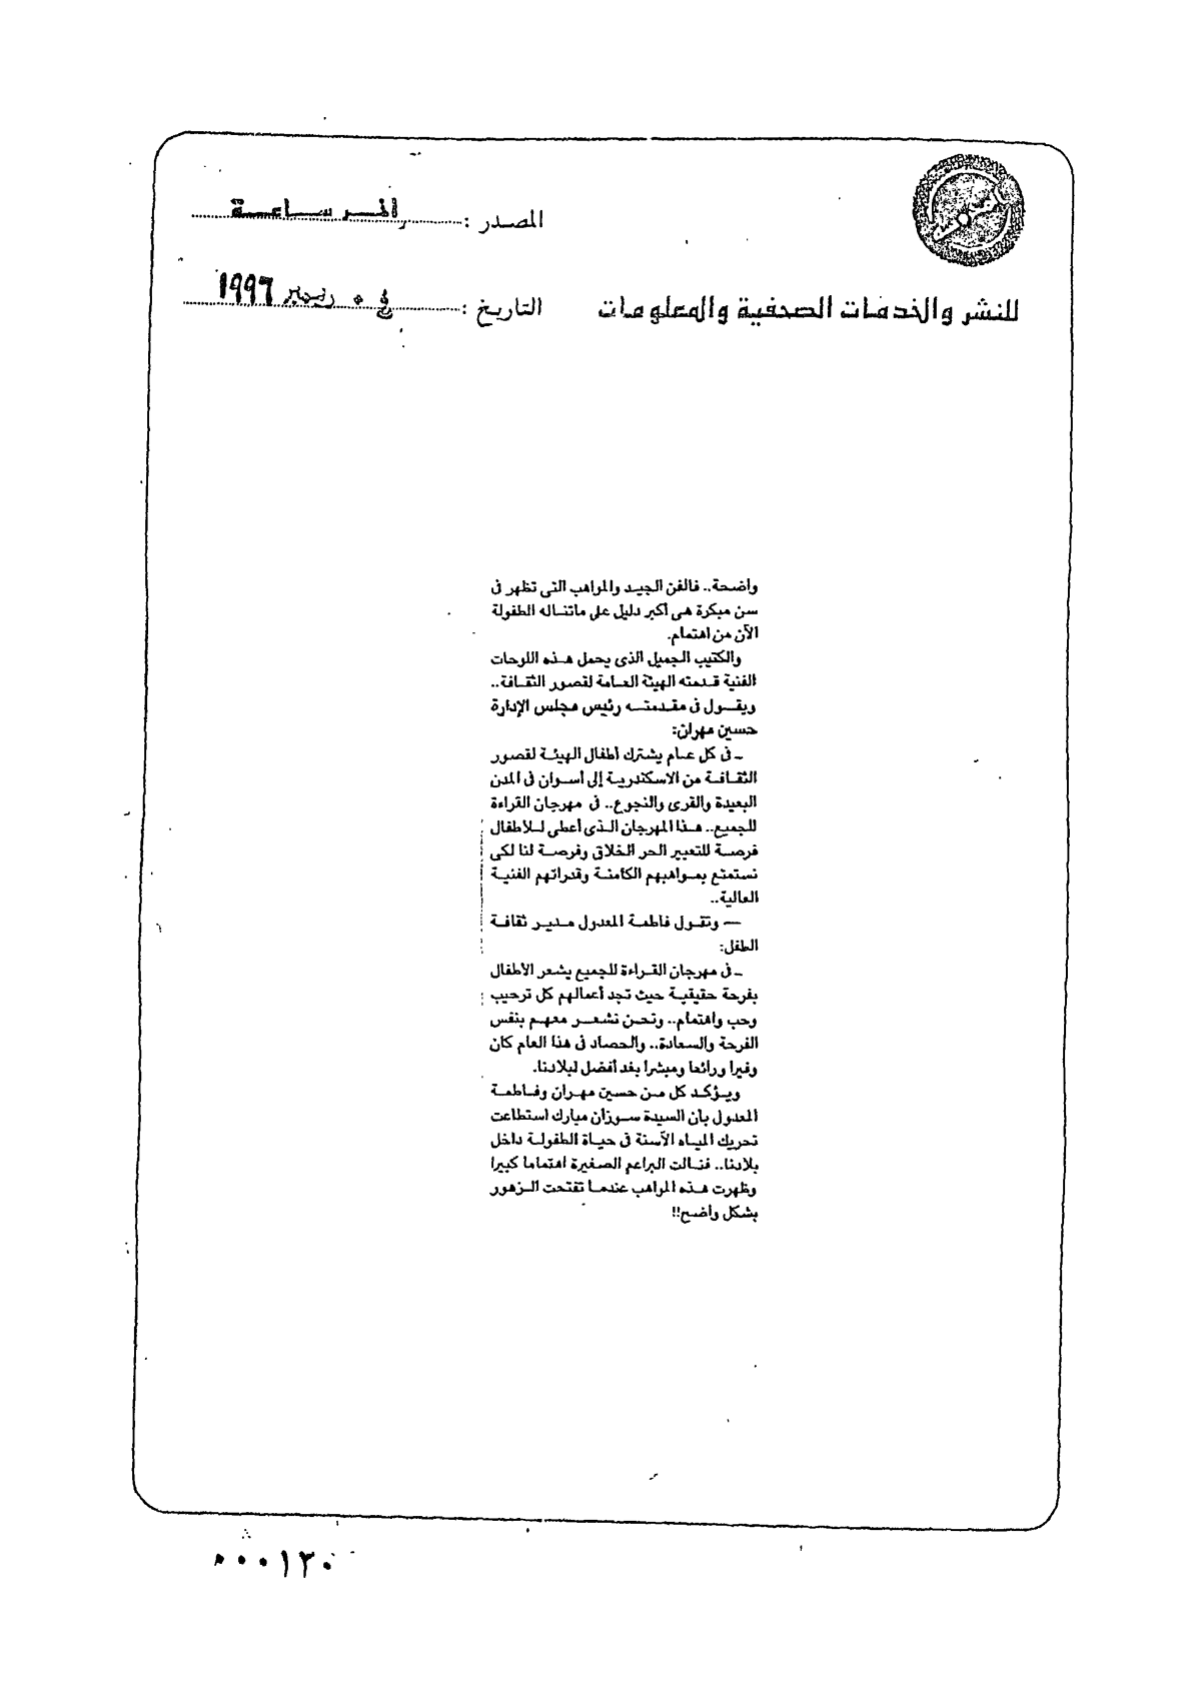 المصدر : آخر ساعة
للنشر والخدمات الصحفية والمعلومات
التاريخ : ديسمبر ١٩٩٦
واضحة.. فالفن الجيد والمواهب التى تظهر فى
سن مبكرة هى أكبر دليل على ماتناله الطفولة
الآن من اهتمام.
والكتيب الجميل الذى يحمل هذه اللوحات
الفنية قدمته الهيئة العامة لقصور الثقافة..
ويقول فى مقدمته رئيس مجلس الإدارة
حسين مهران:
ـ فى كل عام يشترك أطفال الهيئة لقصور
الثقافة من الاسكندرية إلى أسوان فى المدن
البعيدة والقرى والنجوع.. فى مهرجان القراءة
للجميع.. هذا المهرجان الذى أعطى للاطفال
فرصة للتعبير الحر الخلاق وفرصة لنا لكى
نستمتع بمواهبهم الكامنة وقدراتهم الفنية
العالية..
— وتقول فاطمة المعدول مدير ثقافة
الطفل:
ـ فى مهرجان القراءة للجميع يشعر الأطفال
بفرحة حقيقية حيث تجد أعمالهم كل ترحيب
وحب واهتمام.. ونحن نشعر معهم بنفس
الفرحة والسعادة.. والحصاد فى هذا العام كان
وفيرا ورائعا ومبشرا بغد أفضل لبلادنا.
ويؤكد كل من حسين مهران وفاطمة
المعدول بأن السيدة سوزان مبارك استطاعت
تحريك المياه الآسنة فى حياة الطفولة داخل
بلادنا.. فنالت البراعم الصغيرة اهتماما كبيرا
وظهرت هذه المواهب عندما تفتحت الزهور
بشكل واضح!!
٠٠٠١٢٠